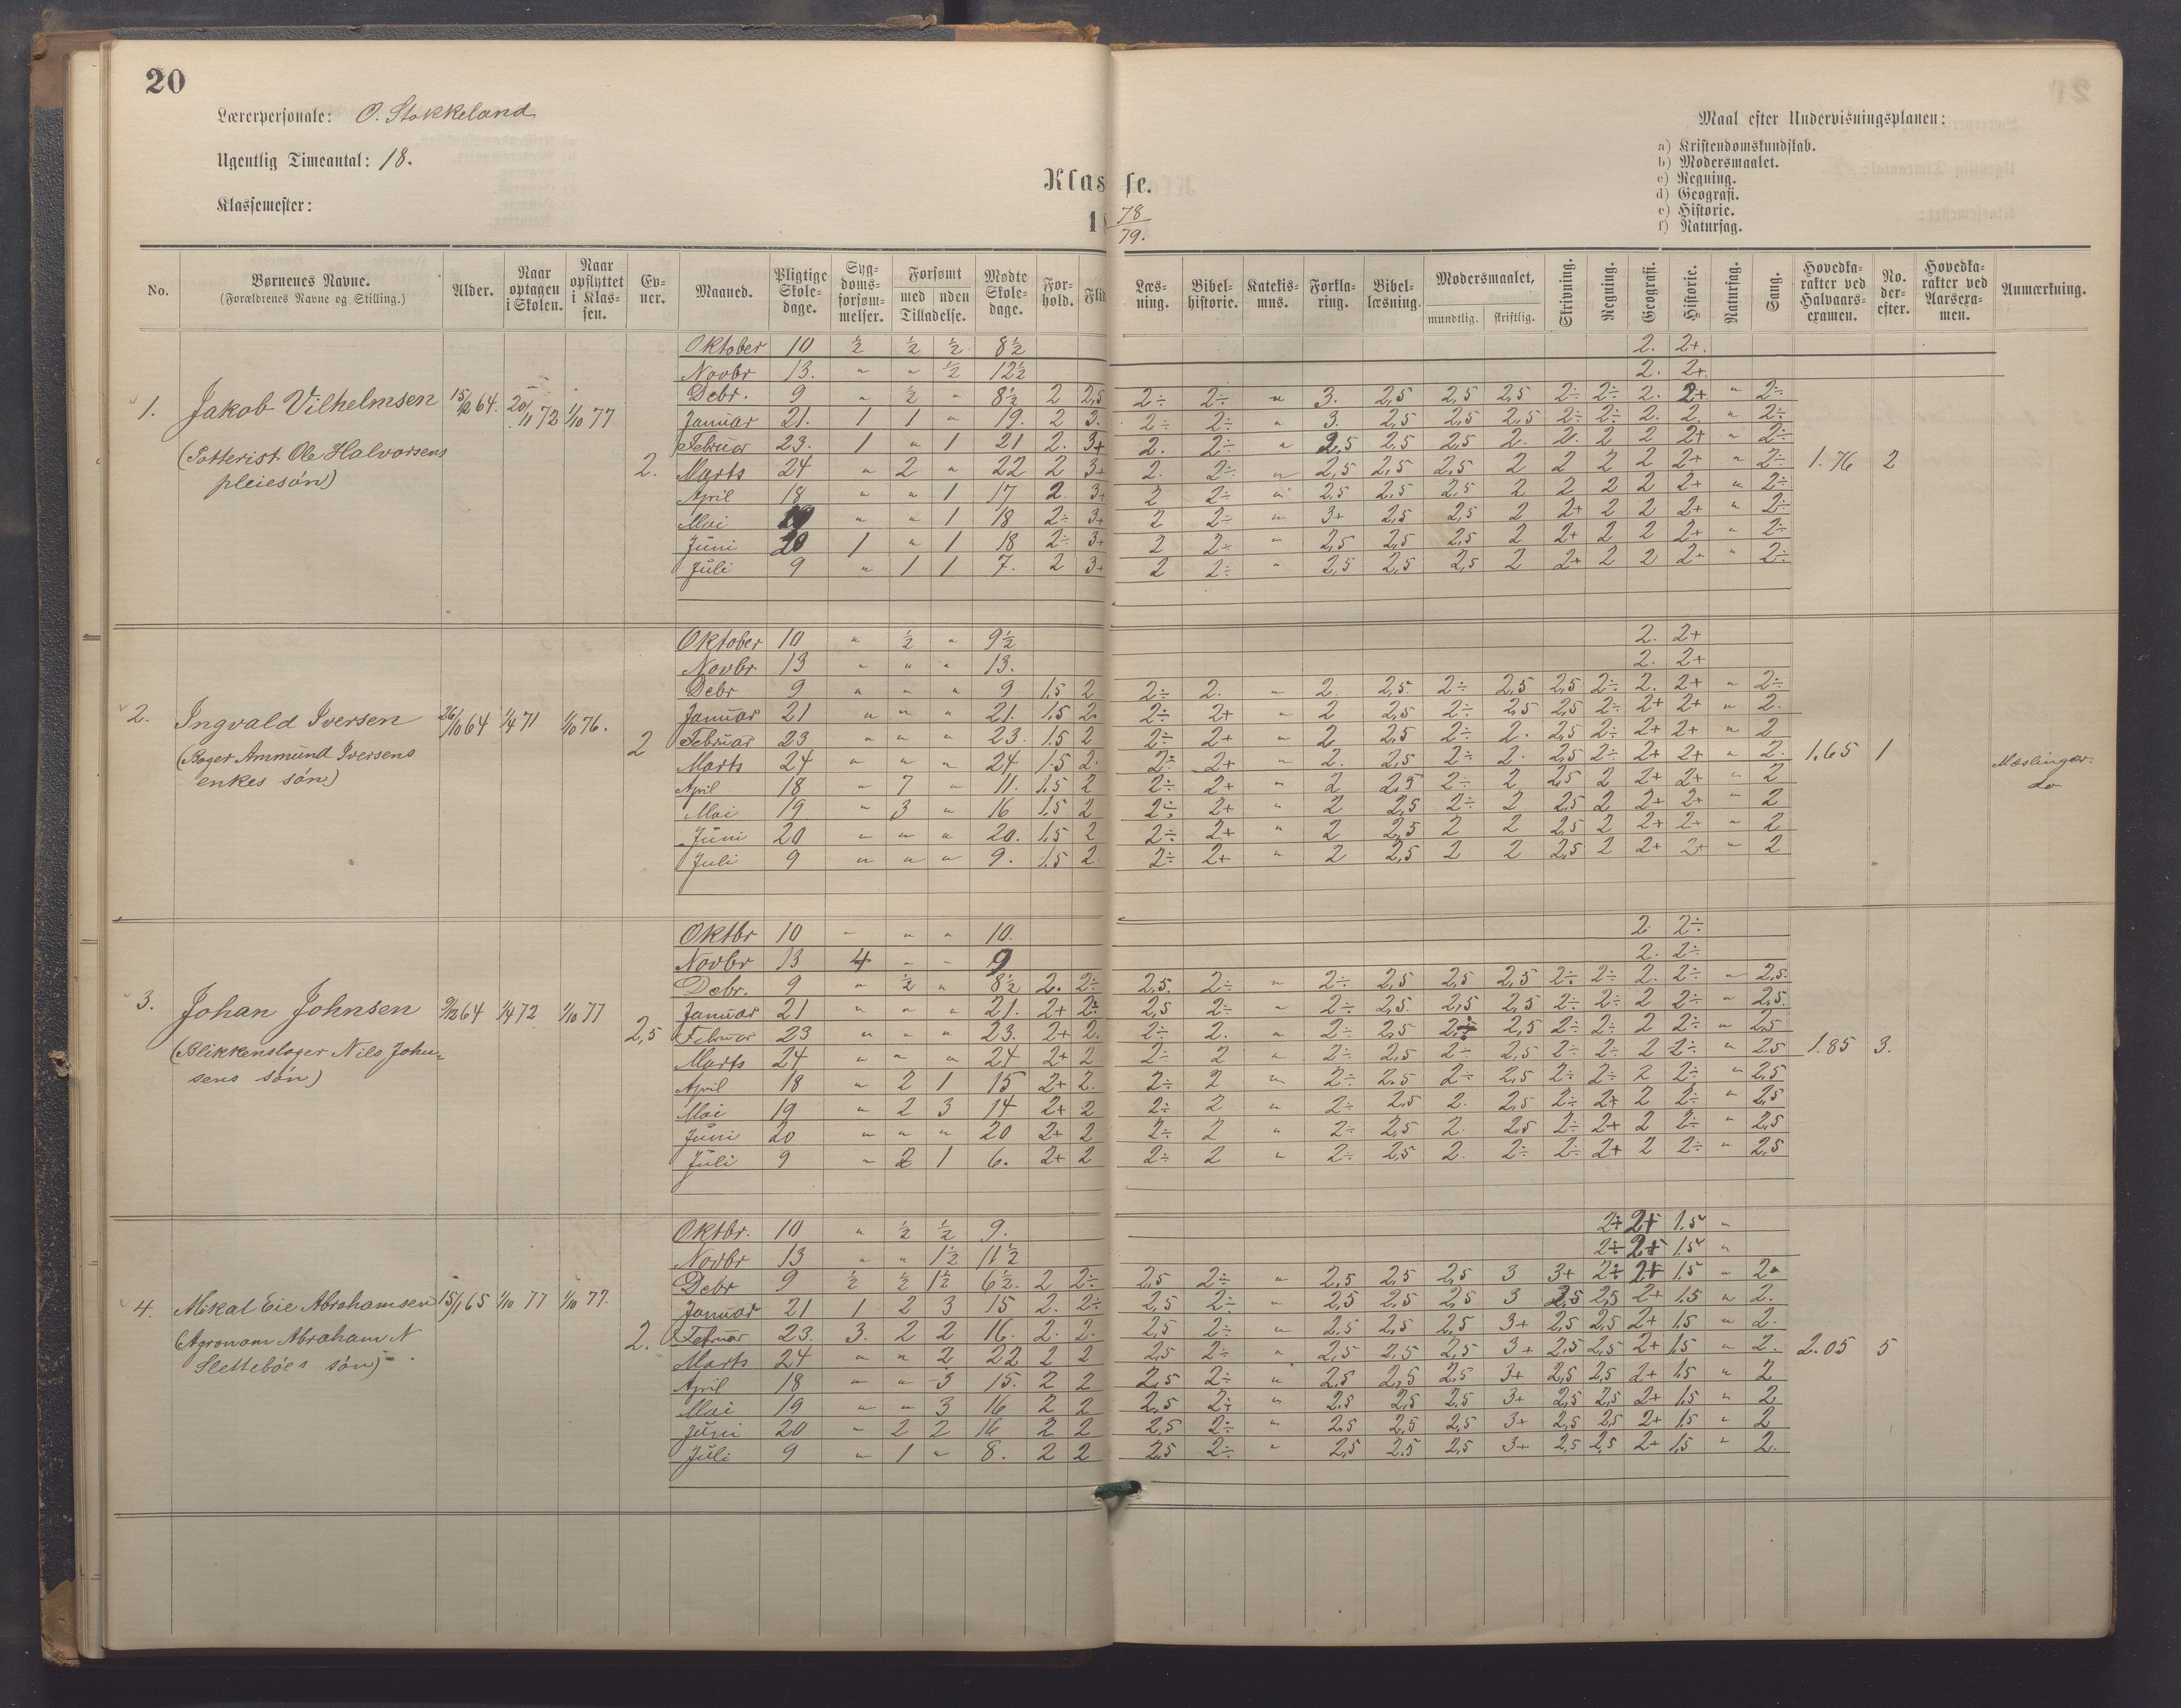 20
Lærerpersonale: O. Stokkeland
Ugentlig Timeantal: 18.
Klassemester:
Klasse.
18 78/79.
Maal efter Undervisningsplanen:
a) Kristendomskundskab.
b) Modersmaalet.
c) Regning.
d) Geografi.
e) Historie.
f) Naturfag.
No. Børnenes Navne. (Forældrenes Navne og Stilling.) Alder. Naar optagen i Skolen. Naar opflyttet i Klassen. Evner. Maaned. Pligtige Skoledage. Sygdomsforsømmelser. Forsømt med uden Tilladelse. Mødte Skoledage. Forhold. Flid Læsning. Bibelhistorie. Katekismus. Forklaring. Bibellæsning. Modersmaalet, mundtlig. skriftlig. Skrivning. Regning. Geografi. Historie. Naturfag. Sang. Hovedkarakter ved Halvaarsexamen. No. derefter. Hovedkarakter ved Aarsexamen. Anmærkning.
1. Jakob Vilhelmsen 15/12 64. 20/11 72 1/10 77
(Potterist Ole Halvorsens
pleiesøn)
2.
Oktober 10 ½ ½ ½ 8½ 2. 2+.
Novbr 13. " " ½ 12½ 2. 2+
Debr. 9 " ½ " 8½ 2 2,5 2÷ 2÷ " 3. 2,5 2,5 2,5 2÷ 2÷ 2. 2+ " 2÷
Januar 21. 1 1 " 19. 2 3. 2÷ 2÷ " 3. 2,5 2,5 2,5 2÷ 2÷ 2. 2. " 2÷
Februar 23. 1 " 1 21 2. 3+ 2. 2÷ " 2,5 2,5 2,5 2. 2. 2 2 2+ " 2÷
Marts 24 " 2 " 22 2 3+ 2. 2÷ " 2,5 2,5 2,5 2 2 2 2 2+ " 2÷ 1.76 2
April 18 " " 1 17 2. 3+ 2 2÷ " 2,5 2,5 2,5 2 2 2 2 2+ " 2÷
Mai 19 " " 1 18 2÷ 3+ 2 2÷ " 3+ 2,5 2,5 2 2+ 2 2 2+ " 2÷
Juni 20 1 " 1 18 2÷ 3+ 2 2÷ " 2,5 2,5 2,5 2 2+ 2 2 2+ " 2÷
Juli 9 " 1 1 7. 2 3+ 2 2÷ " 2,5 2,5 2,5 2 2+ 2 2 2+ " 2÷
2. Ingvald Iversen 26/10 64 1/4 71 1/10 76.
(Bager Ammund Iversens
enkes søn)
2
Oktober 10 " ½ " 9½ 2. 2+
Novbr 13 " " " 13. 2. 2+
Debr 9 " " " 9 1.5 2 2÷ 2. " 2. 2,5 2÷ 2,5 2,5 2÷ 2. 2+ " 2÷
Januar 21 " " " 21. 1.5 2. 2÷ 2+ " 2 2,5 2÷ 2,5 2,5 2÷ 2+ 2+ " 2.
Februar 23 " " " 23. 1.5 2 2÷ 2+ " 2 2,5 2÷ 2. 2,5 2÷ 2+ 2+ " 2
Marts 24 " " " 24 1.5 2. 2÷ 2+ " 2. 2,5 2÷ 2. 2,5 2÷ 2+ 2+ " 2. 1.65 1
April 18 " 7 " 11. 1.5 2 2÷ 2+ " 2 2,5 2÷ 2 2,5 2 2+ 2+ " 2 Mæslinger.
Mai 19 " 3 " 16 1.5 2 2÷ 2+ " 2 2,5 2÷ 2 2,5 2 2+ 2+ " 2 do
Juni 20 " " " 20. 1.5 2 2÷ 2+ " 2 2,5 2 2 2,5 2 2+ 2+ " 2
Juli 9 " " " 9. 1.5 2 2÷ 2+ " 2 2,5 2 2 2,5 2 2+ 2+ " 2
3. Johan Johnsen 9/12 64 1/4 72 1/10 77
(Blikkenslager Nils John-
sens søn)
2,5
Oktbr 10 " " " 10. 2. 2÷
Novbr 13 4 " " 9 2. 2÷
Debr. 9 " ½ " 8½ 2. 2÷ 2,5. 2÷ " 2÷ 2,5 2,5 2,5 2÷ 2÷ 2. 2÷ " 2,5.
Januar 21 " " " 21. 2+ 2÷ 2,5 2÷ " 2÷ 2,5. 2,5 2,5 2÷ 2÷ 2 2÷ " 2,5.
Februar 23 " " " 23. 2+ 2. 2÷ 2. " 2÷ 2,5 2÷ 2,5 2÷ 2÷ 2 2÷ " 2,5
Marts 24 " " " 24 2+ 2 2÷ 2 " 2÷ 2,5 2÷ 2,5 2÷ 2÷ 2 2÷ " 2,5 1.85 3.
April 18 " 2 1 15 2+ 2. 2÷ 2 " 2÷ 2,5 2÷ 2,5 2÷ 2÷ 2 2÷ " 2,5
Mai 19 " 2 3 14 2+ 2 2÷ 2 " 2÷ 2,5 2. 2,5 2÷ 2+ 2 2÷ " 2,5
Juni 20 " " " 20 2+ 2 2÷ 2 " 2÷ 2,5 2. 2,5 2÷ 2+ 2 2÷ " 2,5
Juli 9 " 2 1 6. 2+ 2 2÷ 2 " 2÷ 2,5 2. 2÷ 2÷ 2+ 2 2÷ " 2,5
4. Mikal Eie Abrahamsen 15/1 65 1/10 77 1/10 77.
(Agronom Abraham N
Slettebøes søn)
2.
Oktbr. 10 " ½ ½ 9. 2÷ 2+ 1.5 "
Novbr 13 " " 1½ 11½ 2÷ 2+ 1.5 "
Debr 9 ½ ½ 1½ 6½. 2 2÷ 2,5 2÷ " 2,5 2,5 2,5 3 3+ 2÷ 2+ 1.5 " 2.
Januar 21 1 2 3 15 2. 2÷ 2,5 2÷ " 2,5 2,5 2,5 3 2,5 2,5 2+ 1.5 " 2.
Februar 23. 3. 2 2 16. 2. 2. 2,5 2÷ " 2,5 2,5 2,5 3+ 2,5 2,5 2+ 1.5 " 2.
Marts 24 " " 2 22 2 2 2,5 2÷ " 2,5 2,5 2,5 3+ 2,5 2,5 2+ 1.5 " 2. 2.05 5
April 18 " " 3 15. 2 2 2,5 2÷ " 2,5 2,5 2,5 3+ 2,5 2,5 2+ 1.5 " 2
Mai 19 " " 3 16 2 2 2,5 2÷ " 2,5 2,5 2,5 3+ 2,5 2,5 2+ 1.5 " 2
Juni 20 " 2 2 16 2 2 2,5 2÷ " 2,5 2,5 2,5 3+ 2,5 2,5 2+ 1.5 " 2
Juli 9 " 1 " 8. 2 2 2,5 2÷ " 2,5 2,5 2,5 3+ 2,5 2,5 2+ 1.5 " 2.